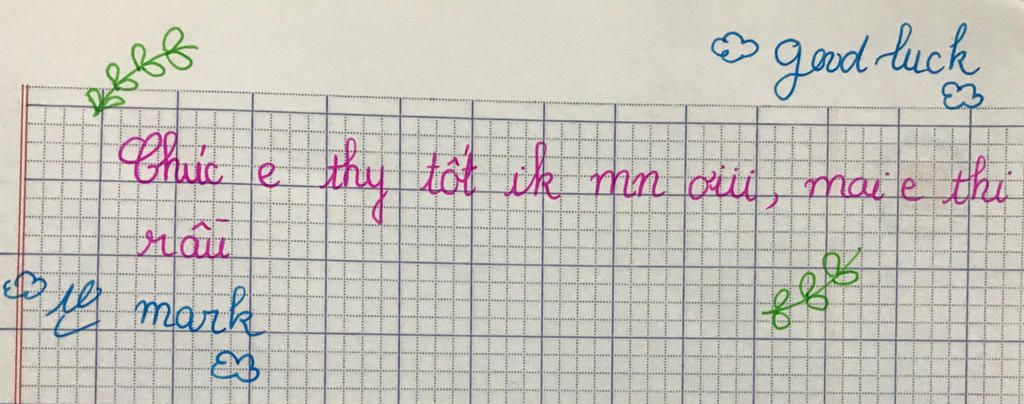 good luck
Chúc e thy tốt ik mn ơiii, mai e thi
râũ
10 mark